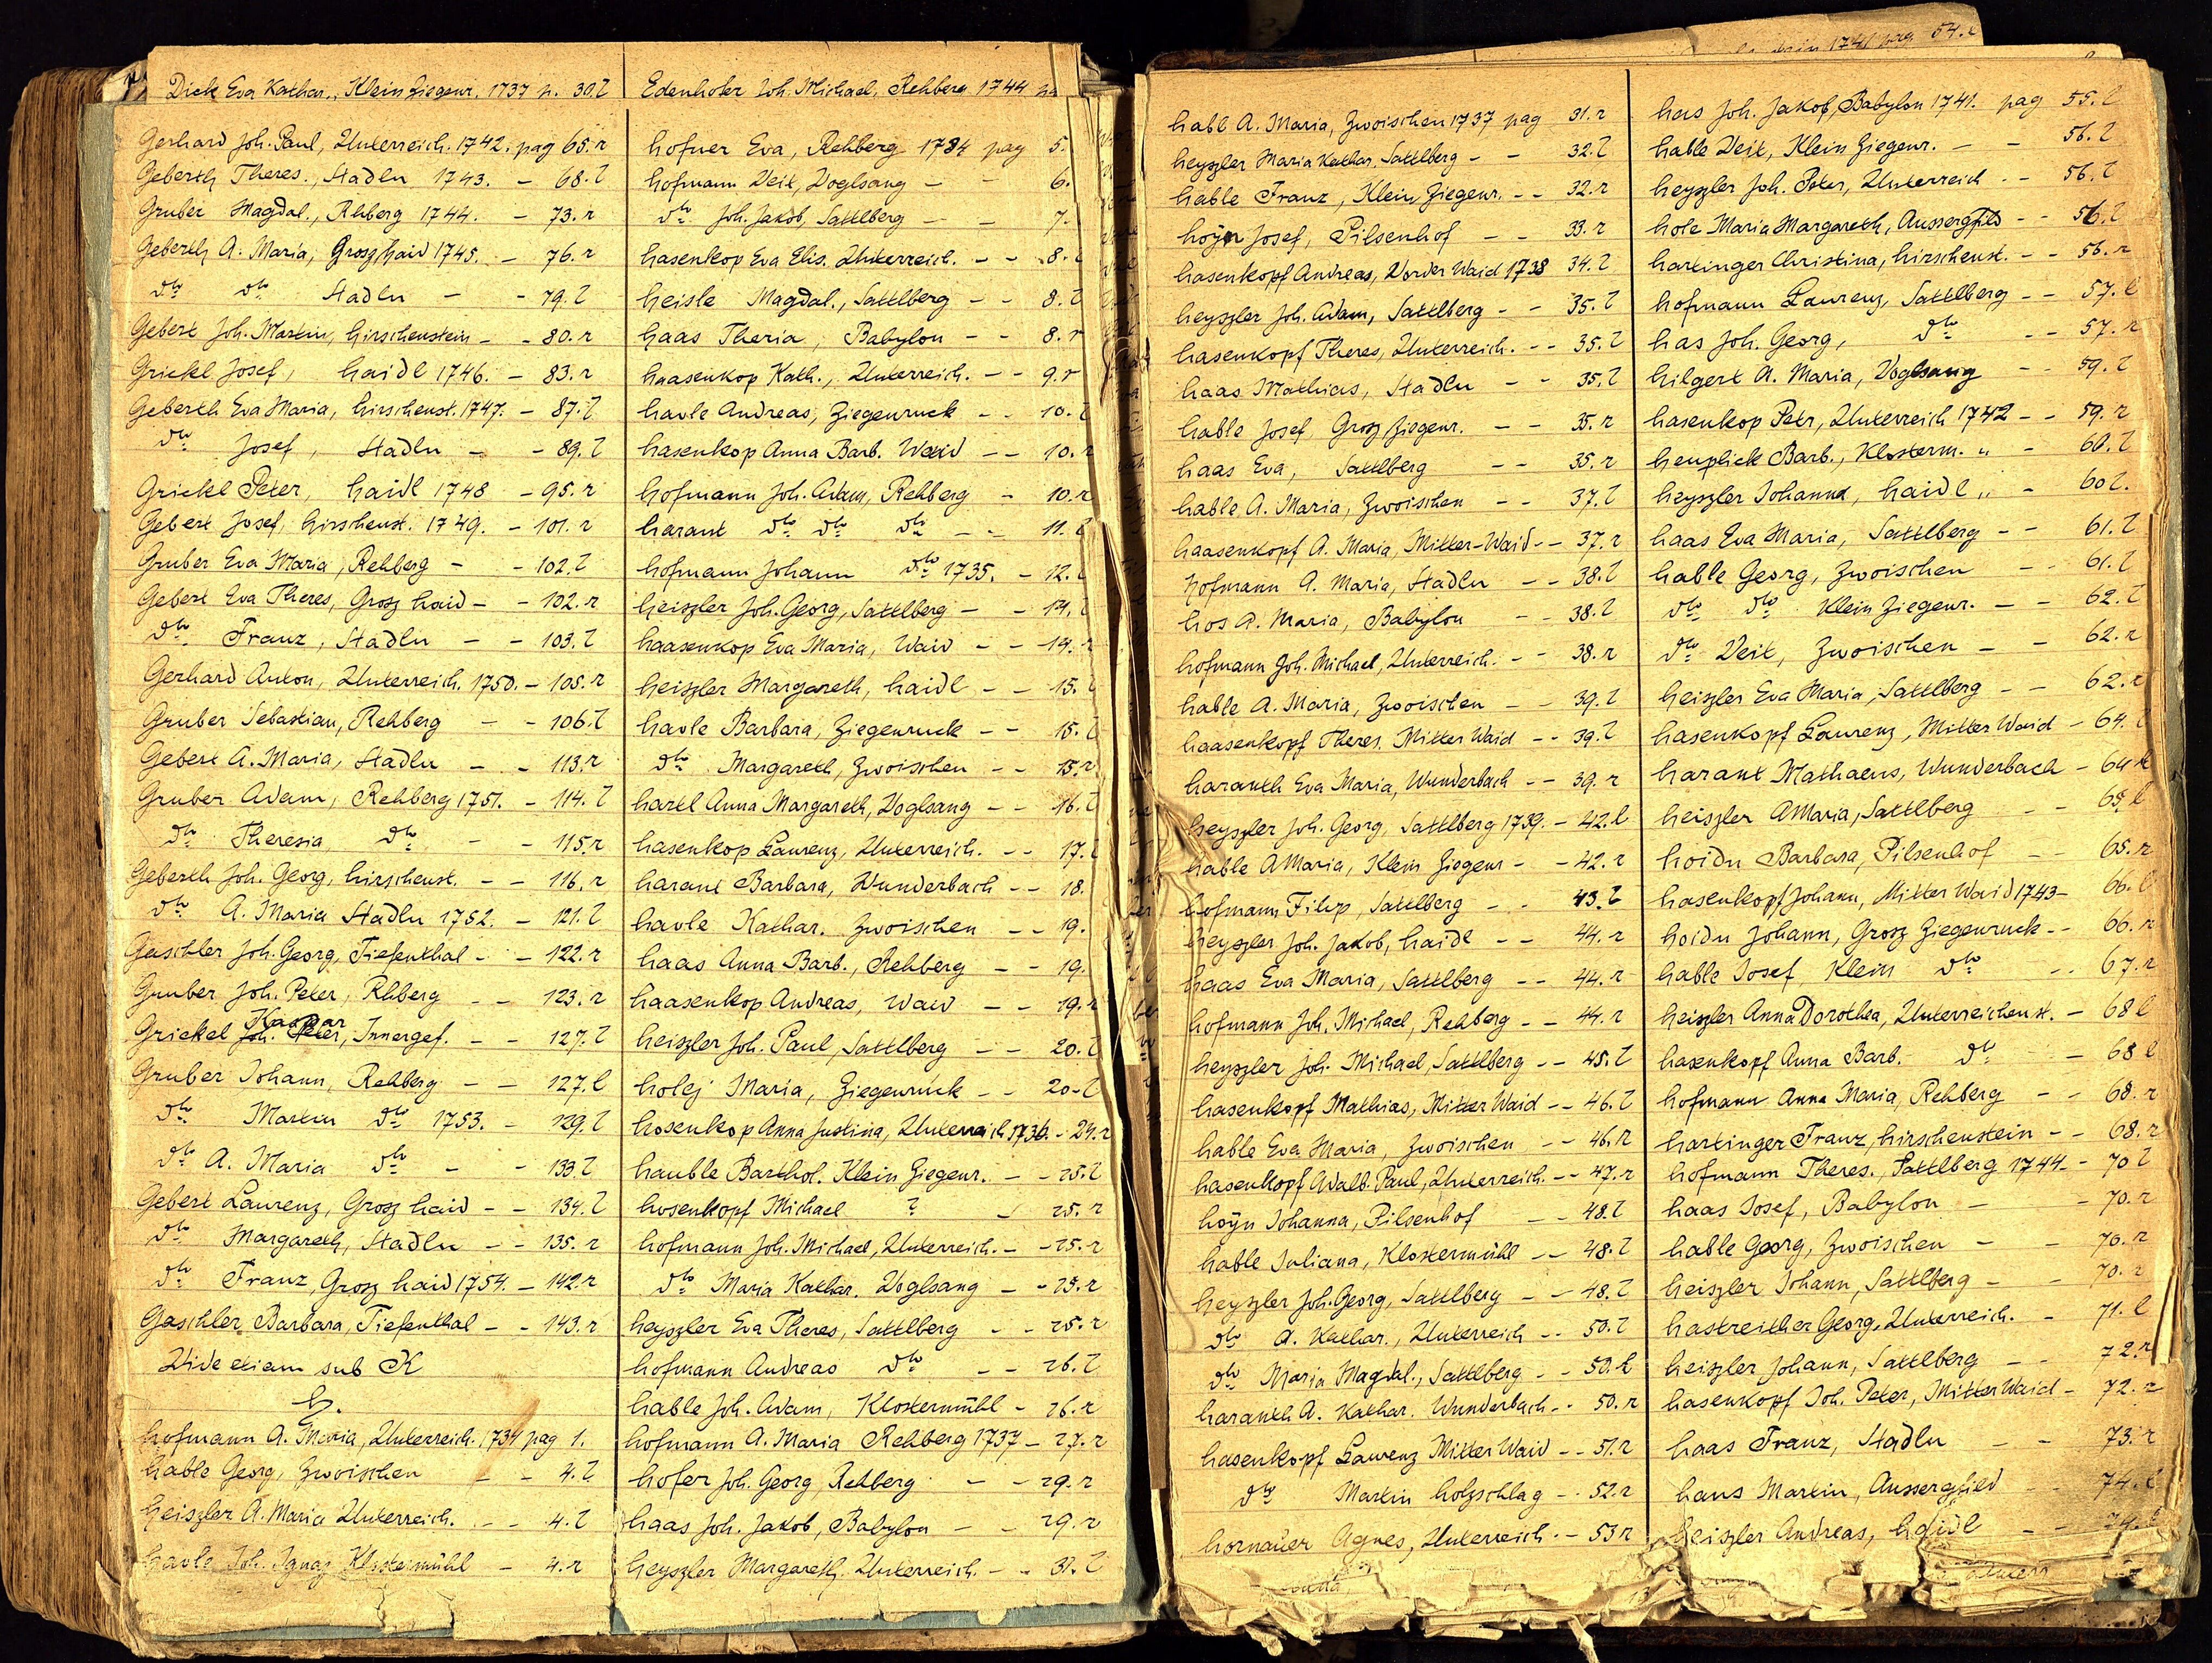 Dick Eva Kathar., Klein Ziegenr. 1737 p. 30.l
Gerhard Joh. Paul, Unterreich. 1742. pag 65.r
Geberth Theres., Stadln 1743. - 68.l
Gruber Magdal., Rhberg 1744. - 73.r
Geberth A. Maria, Grosz haid 1745. - 76.r
dto dto Stadln - - 79.l
Gebert Joh. Martin, hirschenstein - - 80.r
Grickl Josef, haidl 1746. - 83.r
Geberth Eva Maria, hirschenst. 1747. - 87.l
dto Josef, Stadln - - 89.l
Grickl Peter, haidl 1748 - 95.r
Gebert Josef, hirschenst. 1749. - 101.r
Gruber Eva Maria, Rehberg - - 102.l
Gebert Eva Theres, Grosz haid - - 102.r
dto Franz, Stadln - - 103.l
Gerhard Anton, Unterreich. 1750. - 105.r
Gruber Sebastian, Rehberg - - 106.l
Gebert A. Maria, Stadln - - 113.r
Gruber Adam, Rehberg 1751. - 114.l
dto Theresia dto - - 115.r
Geberth Joh. Georg, hirschenst. - - 116.r
dto A. Maria Stadln 1752. - 121.l
Gaschler Joh. Georg, Tiefenthal - - 122.r
Gruber Joh. Peter, Rhberg - - 123.r
Kaspar
Grickel Joh. Peter, Innergef. - - 127.l
Gruber Johann, Rehberg - - 127.l
dto Martin dto 1753. - 129.l
dto A. Maria dto - - 133.l
Gebert Laurenz, Grosz haid - - 134.l
dto Margareth, Stadln - - 135.r
dto Franz, Grosz haid 1754. - 142.r
Gaschler Barbara, Tiefenthal - - 143.r
Vide etiam sub K
h.
hofmann A. Maria, Unterreich. 1734 pag 1.
hable Georg, Zwoischen - - 4.l
heiszler A. Maria Unterreich. - - 4.l
havle Joh. Ignaz Klostermühl - 4.r
Edenhofer Joh. Michael, Rehberg 1744
hofner Eva, Rehberg 1734 pag 5.
hofmann Veit, Voglsang - - 6.
dto Joh. Jakob, Sattlberg - - 7.
hasenkop Eva Elis. Unterreich. - - 8.
heisle Magdal., Sattlberg - - 8.l
haas Theria, Babylon - - 8.r
haasenkop Kath., Unterreich. - - 9.r
havle Andreas, Ziegenruck - - 10.l
hasenkop Anna Barb. Waid - - 10.r
hofmann Joh. Adam, Rehberg - 10.r
harant dto dto dto - - 11.l
hofmann Johann dto 1735. - 12.l
heiszler Joh. Georg, Sattlberg - - 14.
haasenkop Eva Maria, Waid - - 14.r
heiszler Margareth, haidl - - 15.l
havle Barbara, Ziegenruck - - 15.l
dto Margareth, Zwoischen - - 15.r
hartl Anna Margareth, Voglsang - - 16.l
hasenkop Laurenz, Unterreich. - - 17.l
harant Barbara, Wunderbach - - 18.
havle Kathar. Zwoischen - - 19.
haas Anna Barb., Rehberg - - 19.
haasenkop Andreas, Waid - - 19.r
heiszler Joh. Paul, Sattlberg - - 20.l
holej Maria, Ziegenruck - - 20.l
hosenkop Anna Justina, Unterreich 1736. - 24.r
hauble Barthol. Klein Ziegenr. - - 25.l
hosenkopf Michael ? - 25.r
hofmann Joh. Michael, Unterreich. - - 25.r
dto Maria Kathar. Voglsang - - 25.r
heyszler Eva Theres, Sattlberg - - 25.r
hofmann Andreas dto - - 26.l
hable Joh. Adam, Klostermühl - 26.r
hofmann A. Maria Rehberg 1737 - 27.r
hofer Joh. Georg, Rehberg - - 29.r
haas Joh. Jakob, Babylon - - 29.r
heyszler Margareth. Unterreich. - - 31.l
1741 pag 54.
habl A. Maria, Zwoischen 1737 pag 31.r
heyszler Maria Kathar, Sattlberg - - 32.l
hable Franz, Klein Ziegenr. - - 32.r
hoÿn Josef, Pilsenhof - - 33.r
hasenkopf Andreas, Vorder Waid 1738 34.l
heyszler Joh. Adam, Sattlberg - - 35.l
hasenkopf Theres, Unterreich. - - 35.l
haas Mathias, Stadln - - 35.l
hable Josef Grosz Ziegenr. - - 35.r
haas Eva, Sattlberg - - 35.r
hable A. Maria, Zwoischen - - 37.l
haasenkopf A. Maria, Mitter-Waid - - 37.r
hofmann A. Maria, Stadln - - 38.l
hos A. Maria, Babylon - - 38.l
hofmann Joh. Michael, Unterreich. - - 38.r
hable A. Maria, Zwoischen - - 39.l
haasenkopf Theres. Mitter Waid - - 39.l
haranth Eva Maria, Wunderbach - - 39.r
heyszler Joh. Georg, Sattlberg 1739. - 42.l
hable A Maria, Klein Ziegenr - - 42.r
hofmann Filip, Sattlberg - - 43.l
heyszler Joh. Jakob, haidl - - 44.r
haas Eva Maria, Sattlberg - - 44.r
hofmann Joh. Michael, Rehberg - - 44.r
heyszler Joh. Michael, Sattlberg - - 45.l
hasenkopf Mathias, Mitter Waid - - 46.l
hable Eva Maria, Zwoischen - - 46.r
hasenkopf Adalb. Paul, Unterreich. - - 47.r
hoÿn Johanna, Pilsenhof - - 48.l
hable Juliana, Klostermühl - - 48.l
heyszler Joh. Georg, Sattlberg - - 48.l
dto A. Kathar., Unterreich - - 50.l
dto Maria Magdal., Sattlberg - - 50.l
haranth A. Kathar. Wunderbach - - 50.r
hasenkopf Laurenz Mitter Waid - - 51.r
dto Martin holzschlag - - 52.r
hornaüer Agnes, Unterreich - - 53 r
has Joh. Jakob, Babylon 1741. pag 55.l
hable Veit, Klein Ziegenr. - - 56.l
heyszler Joh. Peter, Unterreich - - 56.l
hole Maria Margareth, Aussergfild - - 56.l
hartinger Christina, hirschenst. - - 56.r
hofmann Laurenz, Sattlberg - - 57.l
has Joh. Georg, dto - - 57.r
hilgert A. Maria, Voglsang - - 59.l
hasenkop Petr, Unterreich 1742 - - 59.r
heuplick Barb., Klosterm. " - 60.l
heyszler Johanna, haidl " - 60 l.
haas Eva Maria, Sattlberg - - 61.l
hable Georg, Zwoischen - - 61.l
dto dto Klein Ziegenr. - - 62.l
dto Veit, Zwoischen - - 62.r
heiszler Eva Maria, Sattlberg - - 62.r
hasenkopf Laurenz, Mitter Waid - 64.l
harant Mathaeus, Wunderbach - 64 r
heiszler A Maria, Sattlberg - - 65.l
hoidn Barbara, Pilsenhof - - 65.r
hasenkopf Johann, Mitter Waid 1743 - 66.l
hoidn Johann, Grosz Ziegenruck - - 66.r
hable Josef, Klein dto - - 67.r
heiszler Anna Dorothea, Unterreichenst. - 68 l
hasenkopf Anna Barb. dto - 68 l
hofmann Anna Maria, Rehberg - - 68.r
hartinger Franz, hirschenstein - - 68.r
hofmann Theres., Sattlberg 1744 - - 70 l
haas Josef, Babylon - - 70.r
hable Georg, Zwoischen - - 70.r
heiszler Johann, Sattlberg - - 70.r
hastreither Georg, Unterreich. - 71.l
heiszler Johann, Sattlberg - - 72.r
hasenkopf Joh. Peter, Mitter Waid - 72.r
haas Franz, Stadln - - 73.r
hans Martin, Aussergfild - - 74.l
heiszler Andreas, haidl - - 74.